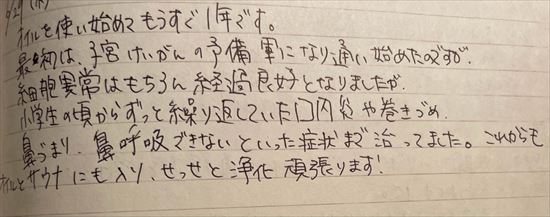 9/29(木)
オイルを使い始めてもうすぐ1年です。
最初は、子宮けいがんの予備軍になり通い始めたのですが、
細胞異常はもちろん経過良好となりましたが、
小学生の頃からずっと繰り返していた口内炎や巻きづめ、
鼻づまり、鼻呼吸できないといった症状まで治ってました。これからも
オイルとサウナにも入り、せっせと浄化頑張ります!